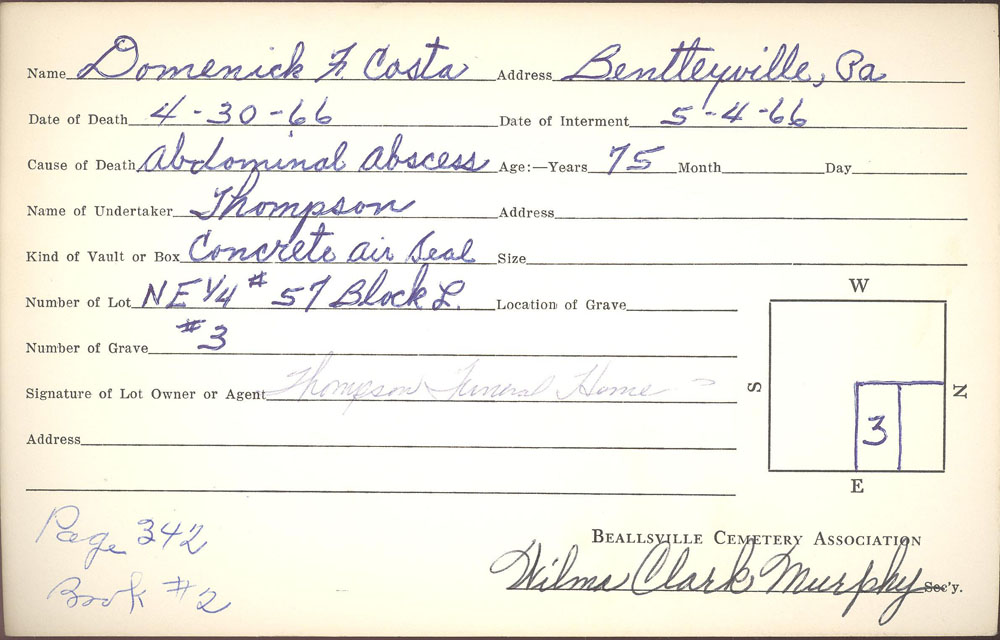 Name Domenick F Costa Address Bentleyville, Pa
Date of Death 4-30-66 Date of Interment 5-4-66
Cause of Death Abdominal abscess Age:—Years 75 Month Day
Name of Undertaker Thompson Address
Kind of Vault or Box Concrete air Seal Size
Number of Lot NE 1/4 # 57 Block L. Location of Grave
Number of Grave #3
Signature of Lot Owner or Agent Thompson Funeral Home
Address
W
S
N
3
E
Page 342
Book #2
BEALLSVILLE CEMETERY ASSOCIATION
Wilma Clark Murphy Sec'y.